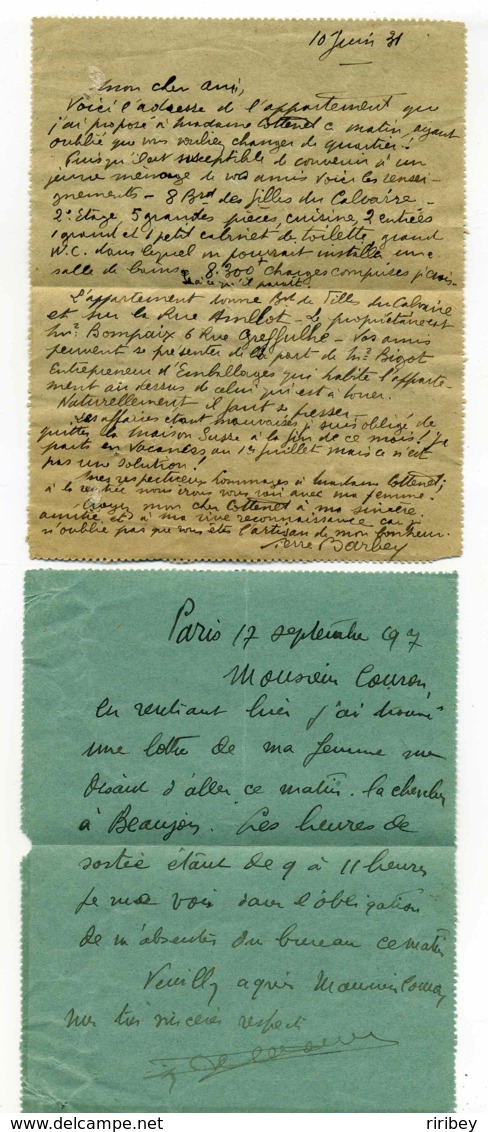 10 Juin 31
mon cher ami,
Voici l'adresse de l'appartement que
j'ai proposé à madame Cottenet ce matin, ayant
oublié que vous vouliez changer de quartier!
Puisqu'il est susceptible de convenir à un
jeune ménage de vos amis voici les rensei-
gnements - 8 Brd des filles du Calvaire -
2e Etage, 5 grandes pièces, cuisine, 2 entrées
1 grand et 1 petit cabinet de toilette, grand
W.C. dans lequel on pourrait installer une
salle de bains 8.300 charges comprises
à ce qu'il paraît.
L'appartement donne Brd de filles du Calvaire
et sur la Rue Amelot - Le propriétaire est
Mr Bompaix 6 Rue Greffulhe - Vos amis
peuvent se présenter de la part de Mr Bigot
Entrepreneur d'Emballages qui habite l'apparte-
ment au dessus de celui qui est à louer.
Naturellement il faut se presser.
Les affaires étant mauvaises je suis obligé de
quitter la maison Susse à la fin de ce mois! je
pars en vacances au 1er juillet mais ce n'est
pas une solution!
mes respectueux hommages à madame Cottenet;
à la rentrée nous irons vous voir avec ma femme.
Croyez mon cher Cottenet à ma sincère
amitié et à ma vive reconnaissance car je
n'oublie pas que vous êtes l'artisan de mon bonheur.
Pierre Barbey
Paris 17 septembre 1907
Monsieur
En rentrant hier j'ai trouvé
une lettre de ma femme me
disant d'aller ce matin la chercher
à Beaujon. Les heures de
sortie étant de 9 à 11 heures
je me vois dans l'obligation
de m'absenter du bureau ce matin
Veuillez agréer Monsieur
mes très sincères respects
riribey